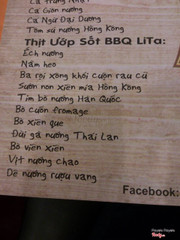 Cá Trứng Nhật
Cá Giòn nướng
Cá Ngừ Đại Dương
Tôm sú nướng Hồng Kông
Thịt Ướp Sốt BBQ LiTa:
Ếch nướng
Nầm heo
Ba rọi xông khói cuộn rau củ
Sườn non xiên mía Hồng Kông
Tim bò nướng Hàn Quốc
Bò cuộn fromage
Bò xiên que
Đùi gà nướng Thái Lan
Bò viên xiên
Vịt nướng chao
Dê nướng rượu vang
Facebook: